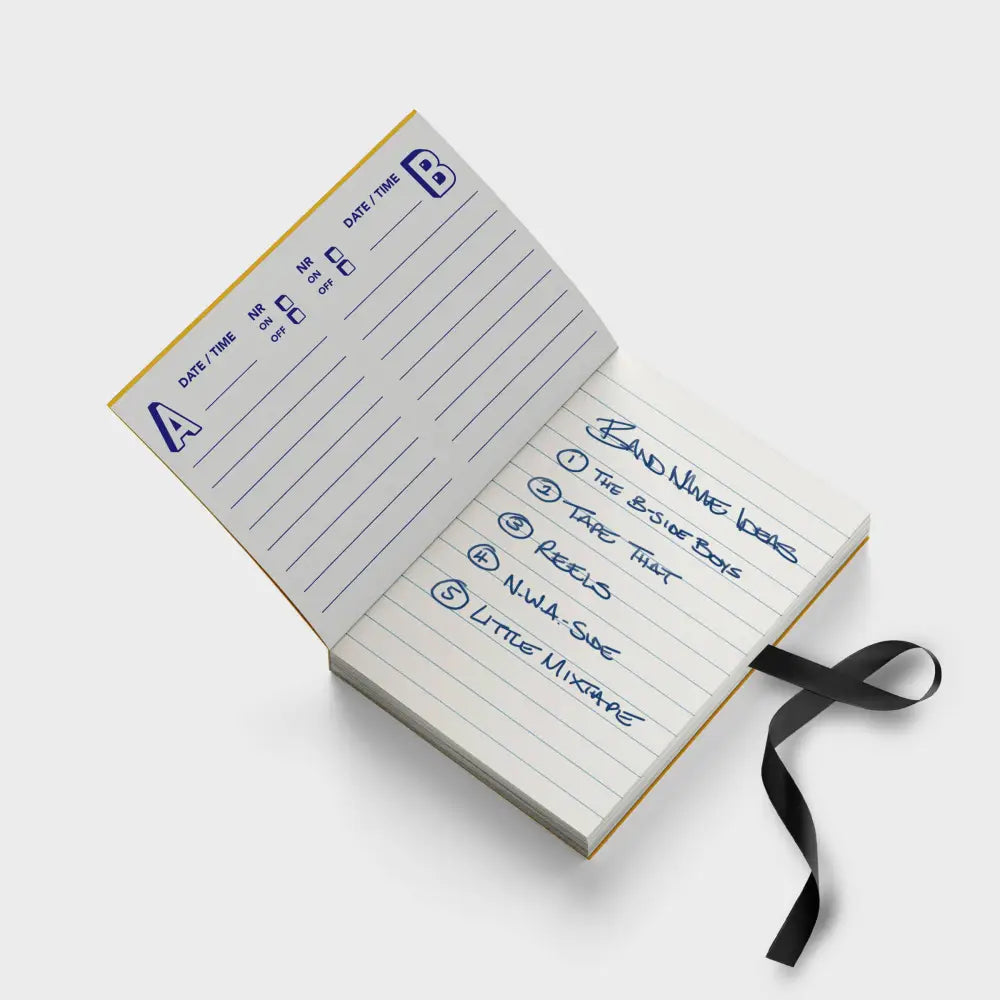 A DATE / TIME NR ON OFF
B DATE / TIME NR ON OFF
BAND NAME IDEAS
1 THE B-SIDE BOYS
2 TAPE THAT
3 REELS
4 N.W.A.-SIDE
5 LITTLE MIXTAPE